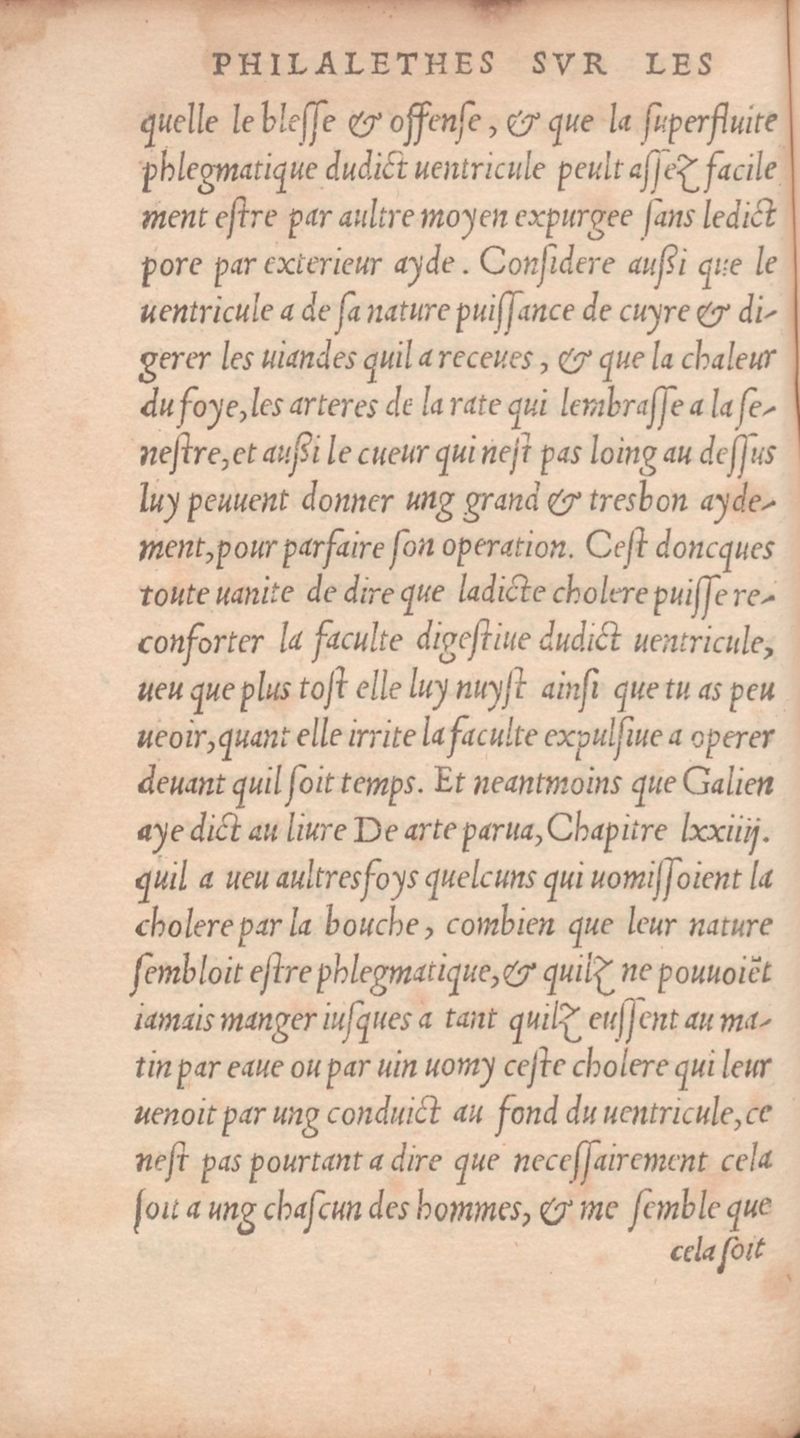 PHILALETHES SVR LES
quelle le blesse & offense, & que la superfluite
phlegmatique dudict uentricule peult assez facile
ment estre par aultre moyen expurgee sans ledict
pore par exterieur ayde. Considere aussi que le
uentricule a de sa nature puissance de cuyre & di-
gerer les uiandes quil a receues, & que la chaleur
du foye, les arteres de la rate qui lembrasse a la se-
nestre, et aussi le cueur qui nest pas loing au dessus
luy peuuent donner ung grand & tresbon ayde-
ment, pour parfaire son operation. Cest doncques
toute uanite de dire que ladicte cholere puisse re-
conforter la faculte digestiue dudict uentricule,
ueu que plus tost elle luy nuyst ainsi que tu as peu
ueoir, quant elle irrite la faculte expulsiue a operer
deuant quil soit temps. Et neantmoins que Galien
aye dict au liure De arte parua, Chapitre lxxiiij.
quil a ueu aultresfoys quelcuns qui uomissoient la
cholere par la bouche, combien que leur nature
sembloit estre phlegmatique, & quilz ne pouuoiēt
iamais manger iusques a tant quilz eussent au ma-
tin par eaue ou par uin uomy ceste cholere qui leur
uenoit par ung conduict au fond du uentricule, ce
nest pas pourtant a dire que necessairement cela
soit a ung chascun des hommes, & me semble que
cela soit